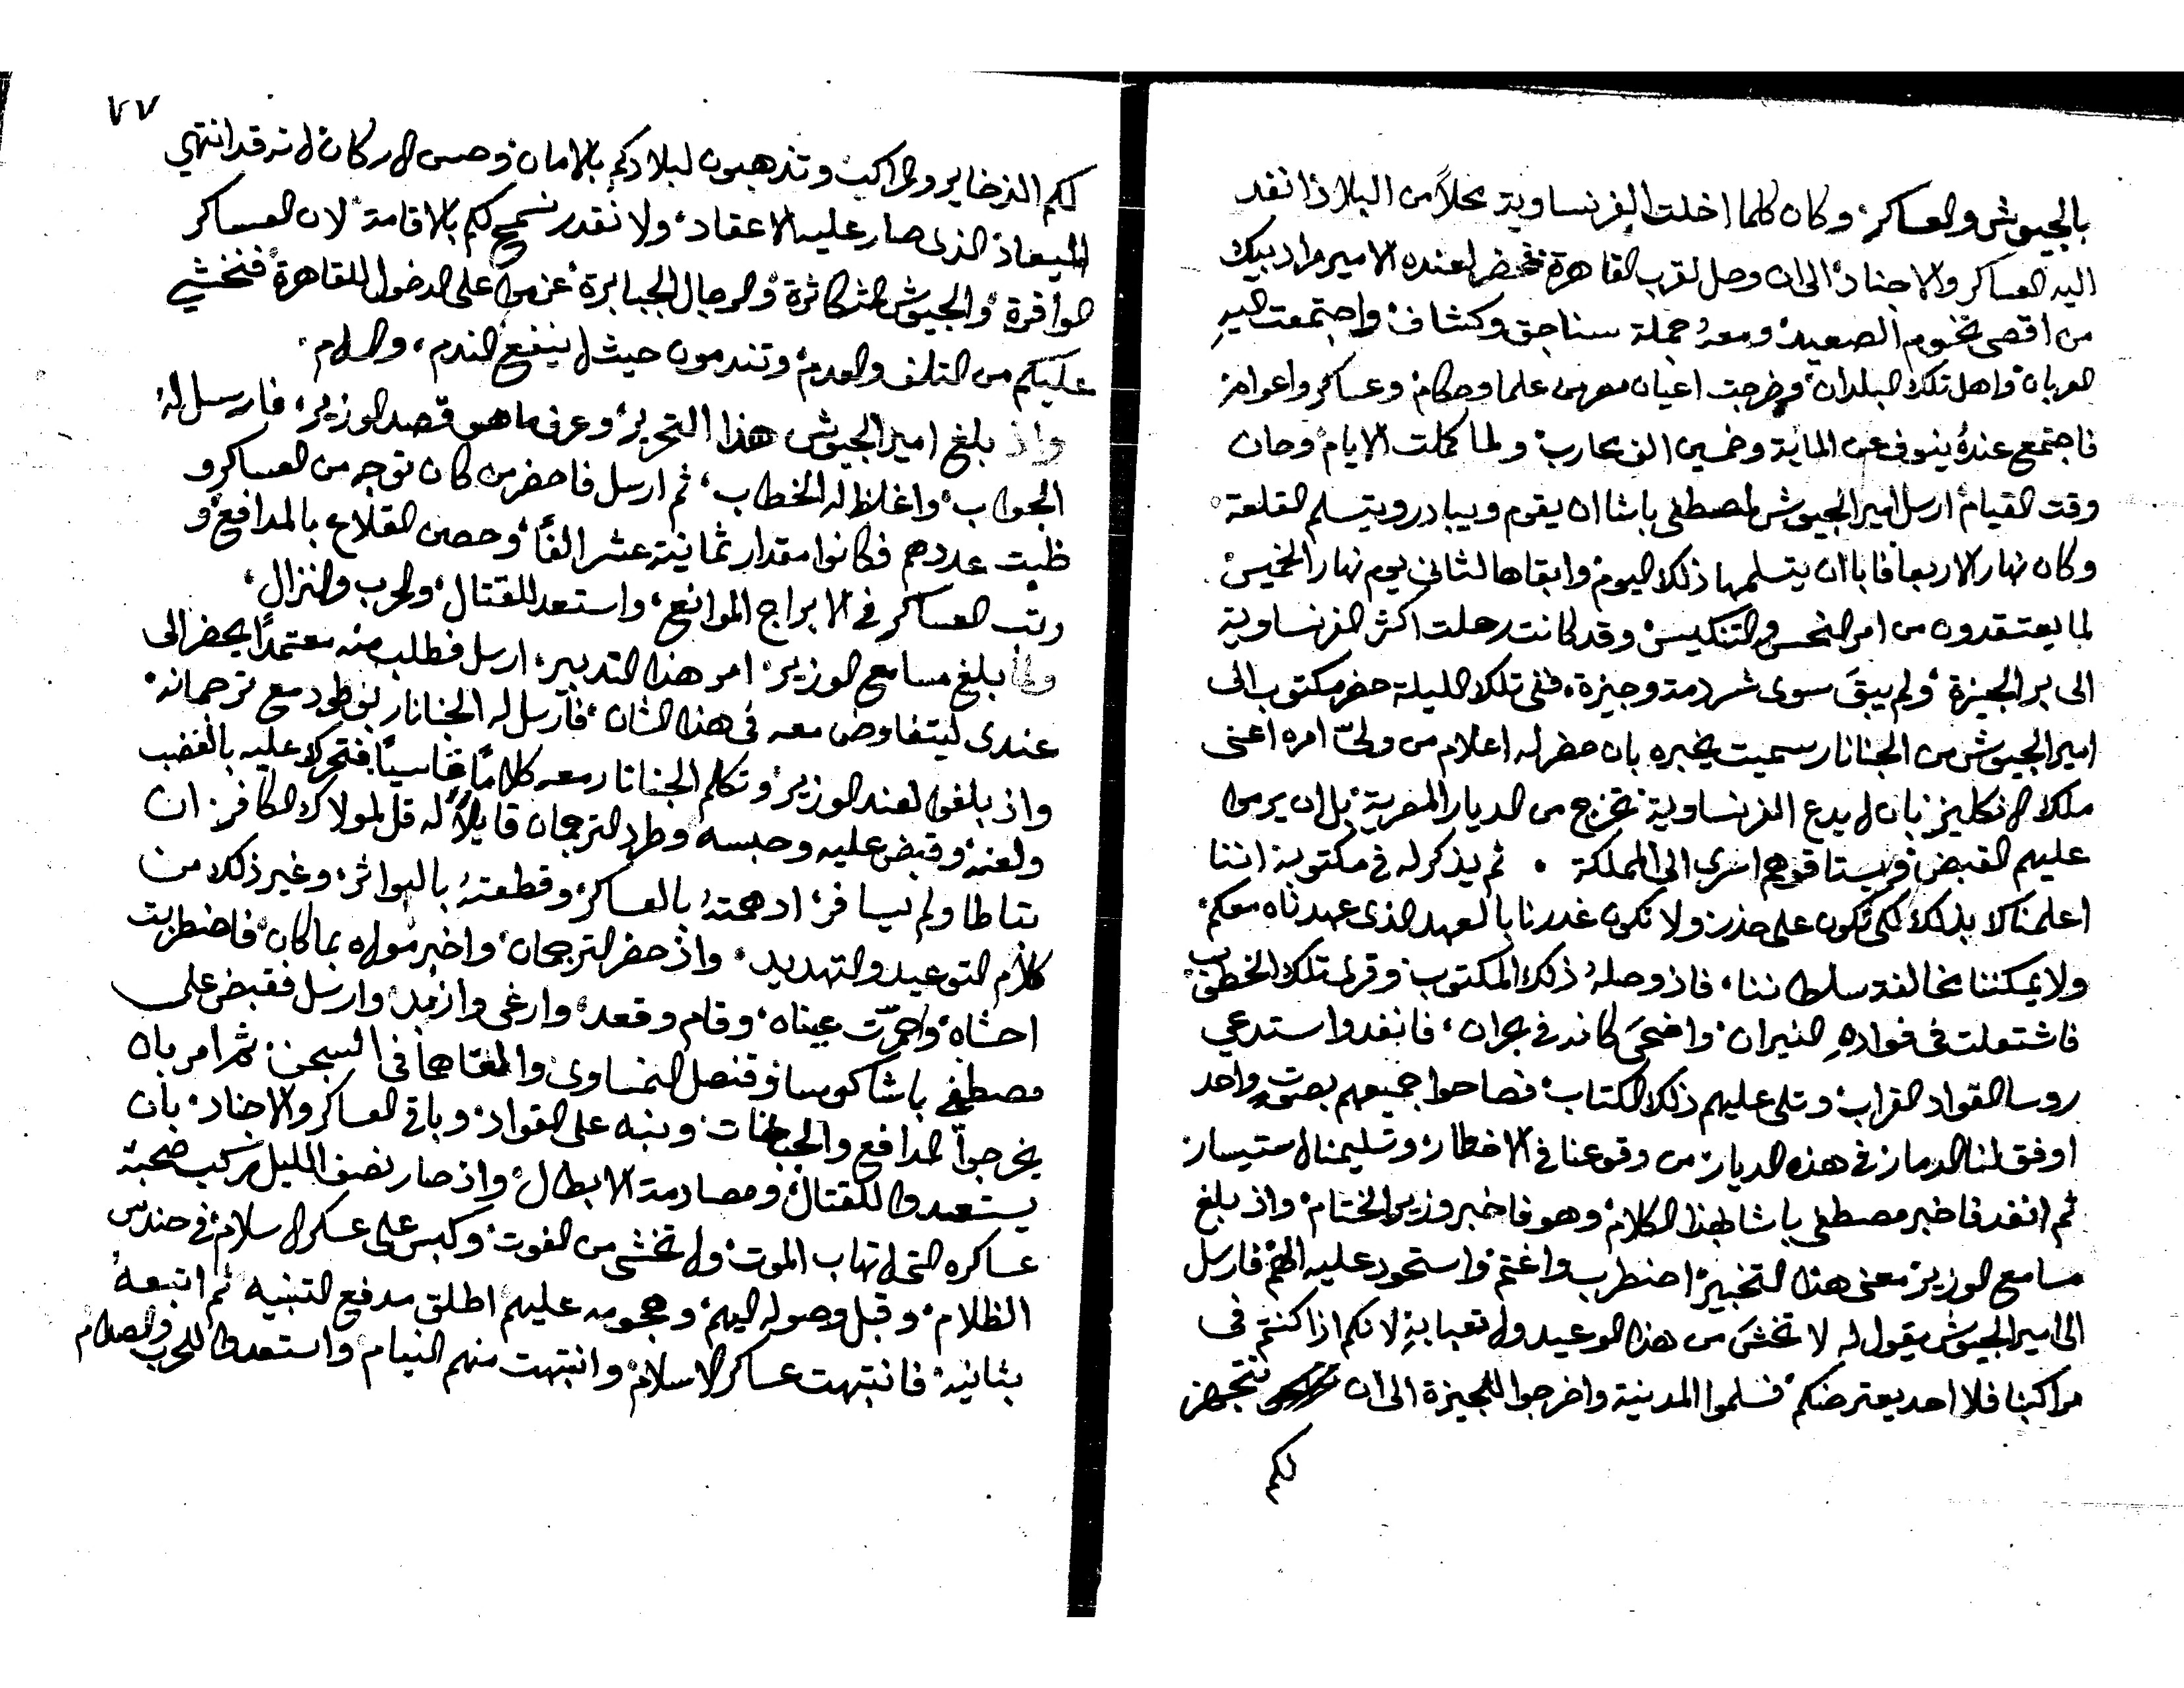 بالجيوش والعساكر، وكان كلما اخلت الفرنساوية محلاً من البلاد انفد
اليه العساكر والاجناد، الى ان وصل لقرب القاهرة، فحضر لعنده الامير مراد بيك
من اقصى تخوم الصعيد، ومعهُ جملة سناجق وكشاف، واجتمعت اليهِ
العربان، واهل تلك البلدان، وخرجت اعيان مصر من علما وحكام، وعساكر واعوام،
فاجتمع عندهُ ينوف عن الماية وخمسين الف محارب، ولما كملت الايام، وحان
وقت القيام، ارسل امير الجيوش لمصطفى باشا ان يقوم ويبادر ويتسلم القلعة،
وكان نهار الاربعا فابا ان يتسلمها ذلك اليوم، وابقاها لثاني يوم نهار الخميس،
لما يعتقدون من امر النحس والتنكيس، وقد كانت رحلت اكثر الفرنساوية
الى بر الجيزة، ولم يبقَ سوى شردمة وجيزة، ففي تلك الليلة حضر مكتوب الى
امير الجيوش من الجنانار سميت يخبره بان حضر له اعلام من وليّ امره اعني
ملك الانكليز، بان لا يدع الفرنساوية تخرج من الديار المصرية، بل ان يرموا
عليهم القبض، ويستاقوهم اسرى الى المملكة . ثم يذكر له في مكتوبه اننا
اعلمناك بذلك لكي تكون على حذر، ولا نكون غدرنا بالعهد الذي عهدناه معكم،
ولا يمكننا مخالفة سلطاننا، فاذ وصلهُ ذلك المكتوب، وقرا تلك الخطوب
فاشتعلت في فوادهِ النيران، واضحَى كانه في بحران، فانفد واستدعي
روسا القواد القراب، وتلى عليهم ذلك الكتاب، فصاحوا جميعهم بصوتٍ واحد
اوفق لنا الدمار في هذه الديار، من وقوعنا في الاخطار، وتسليمنا لاستيسار،
ثم انفد فاخبر مصطفى باشا بهذا الكلام، وهو فاخبر وزير الختام، واذ بلغ
مسامع الوزير، معنى هذا التخبير، اضطرب واغتم، واستحود عليه الهم، فارسل
الى امير الجيوش يقول له لا تخشَ من هذا الوعيد ولا تعبا بهِ لانكم اذا كنتم في
مراكبنا فلا احد يعترضكم، فسلموا المدينة واخرجوا للجيزة الى ان نتجهز
لكم
٧٧
لكم الذخاير والمراكب، وتذهبون لبلادكم بالامان، وحسن الاركان، لانه قد انتهي
الميعاد الذي صار عليه الاعقاد، ولا نقدر نسمح لكم بالاقامة، لان العساكر
الوافرة، والجيوش المتكاثرة، والرجال الجبابرة، عزموا على الدخول للقاهرة، فنخشي
عليكم من التلف والعدم، وتندمون حيث لا ينفع الندم، والسلام.
واذ بلغ امير الجيوش هذا التحرير، وعرف ما هو قصد الوزير، فارسل لهُ
الجواب، واغلظ له الخطاب، ثم ارسل فاحضر من كان توجه من العساكر و
ظبت عددهم فكانوا مقدار ثمانية عشر الفًا، وحصن القلاع بالمدافع، و
رتب العساكر في الابراج الموانع، واستعد للقتال، والحرب والنزال،
ولما بلغ مسامع الوزير، امر هذا التدبير، ارسل فطلب منه معتمداً يحضر الى
عندي ليتفاوض معه في هذا الشان، فارسل له الجنانار بوطود مع ترجمانه،
واذ بلغوا لعند الوزير، وتكلم الجنانار معه كلامًا قاسيًا، فتحرك عليه بالغضب
ولعنهُ وقبض عليه وحبسه وطرد الترجمان قايلاً له قل لمولاك الكافر، ان
تتاطا ولم يسافر، ادهمتهُ بالعساكر، وقطعتهُ بالبواتر، وغير ذلك من
كلام التوعيد والتهديد. واذ حضر الترجمان، واخبر مولاه بما كان، فاضطربت
احشاه، واحمرّت عيناه، وقام وقعد، وارغى وازبد، وارسل فقبض على
مصطفي باشا كوسا، وقنصل النمساوى والقاهما في السجن، ثم امر بان
يخرجوا المدافع والجبخانات، ونبه على القواد، وباقي العساكر والاجناد، بان
يستعدوا للقتال، ومصادمة الابطال، واذ صار نصف الليل، ركب صحبة
عساكره التي لا تهاب الموت، ولا تخشى من الفوت، وكبس على عسكر الاسلام، في حندس
الظلام، وقبل وصوله اليهم، وهجومه عليهم اطلق مدفع التنبيه ثم اتبعهُ
بثانيه، فانتبهت عساكر الاسلام، وانتبهت منهم النيام واستعدوا للحرب والصدام